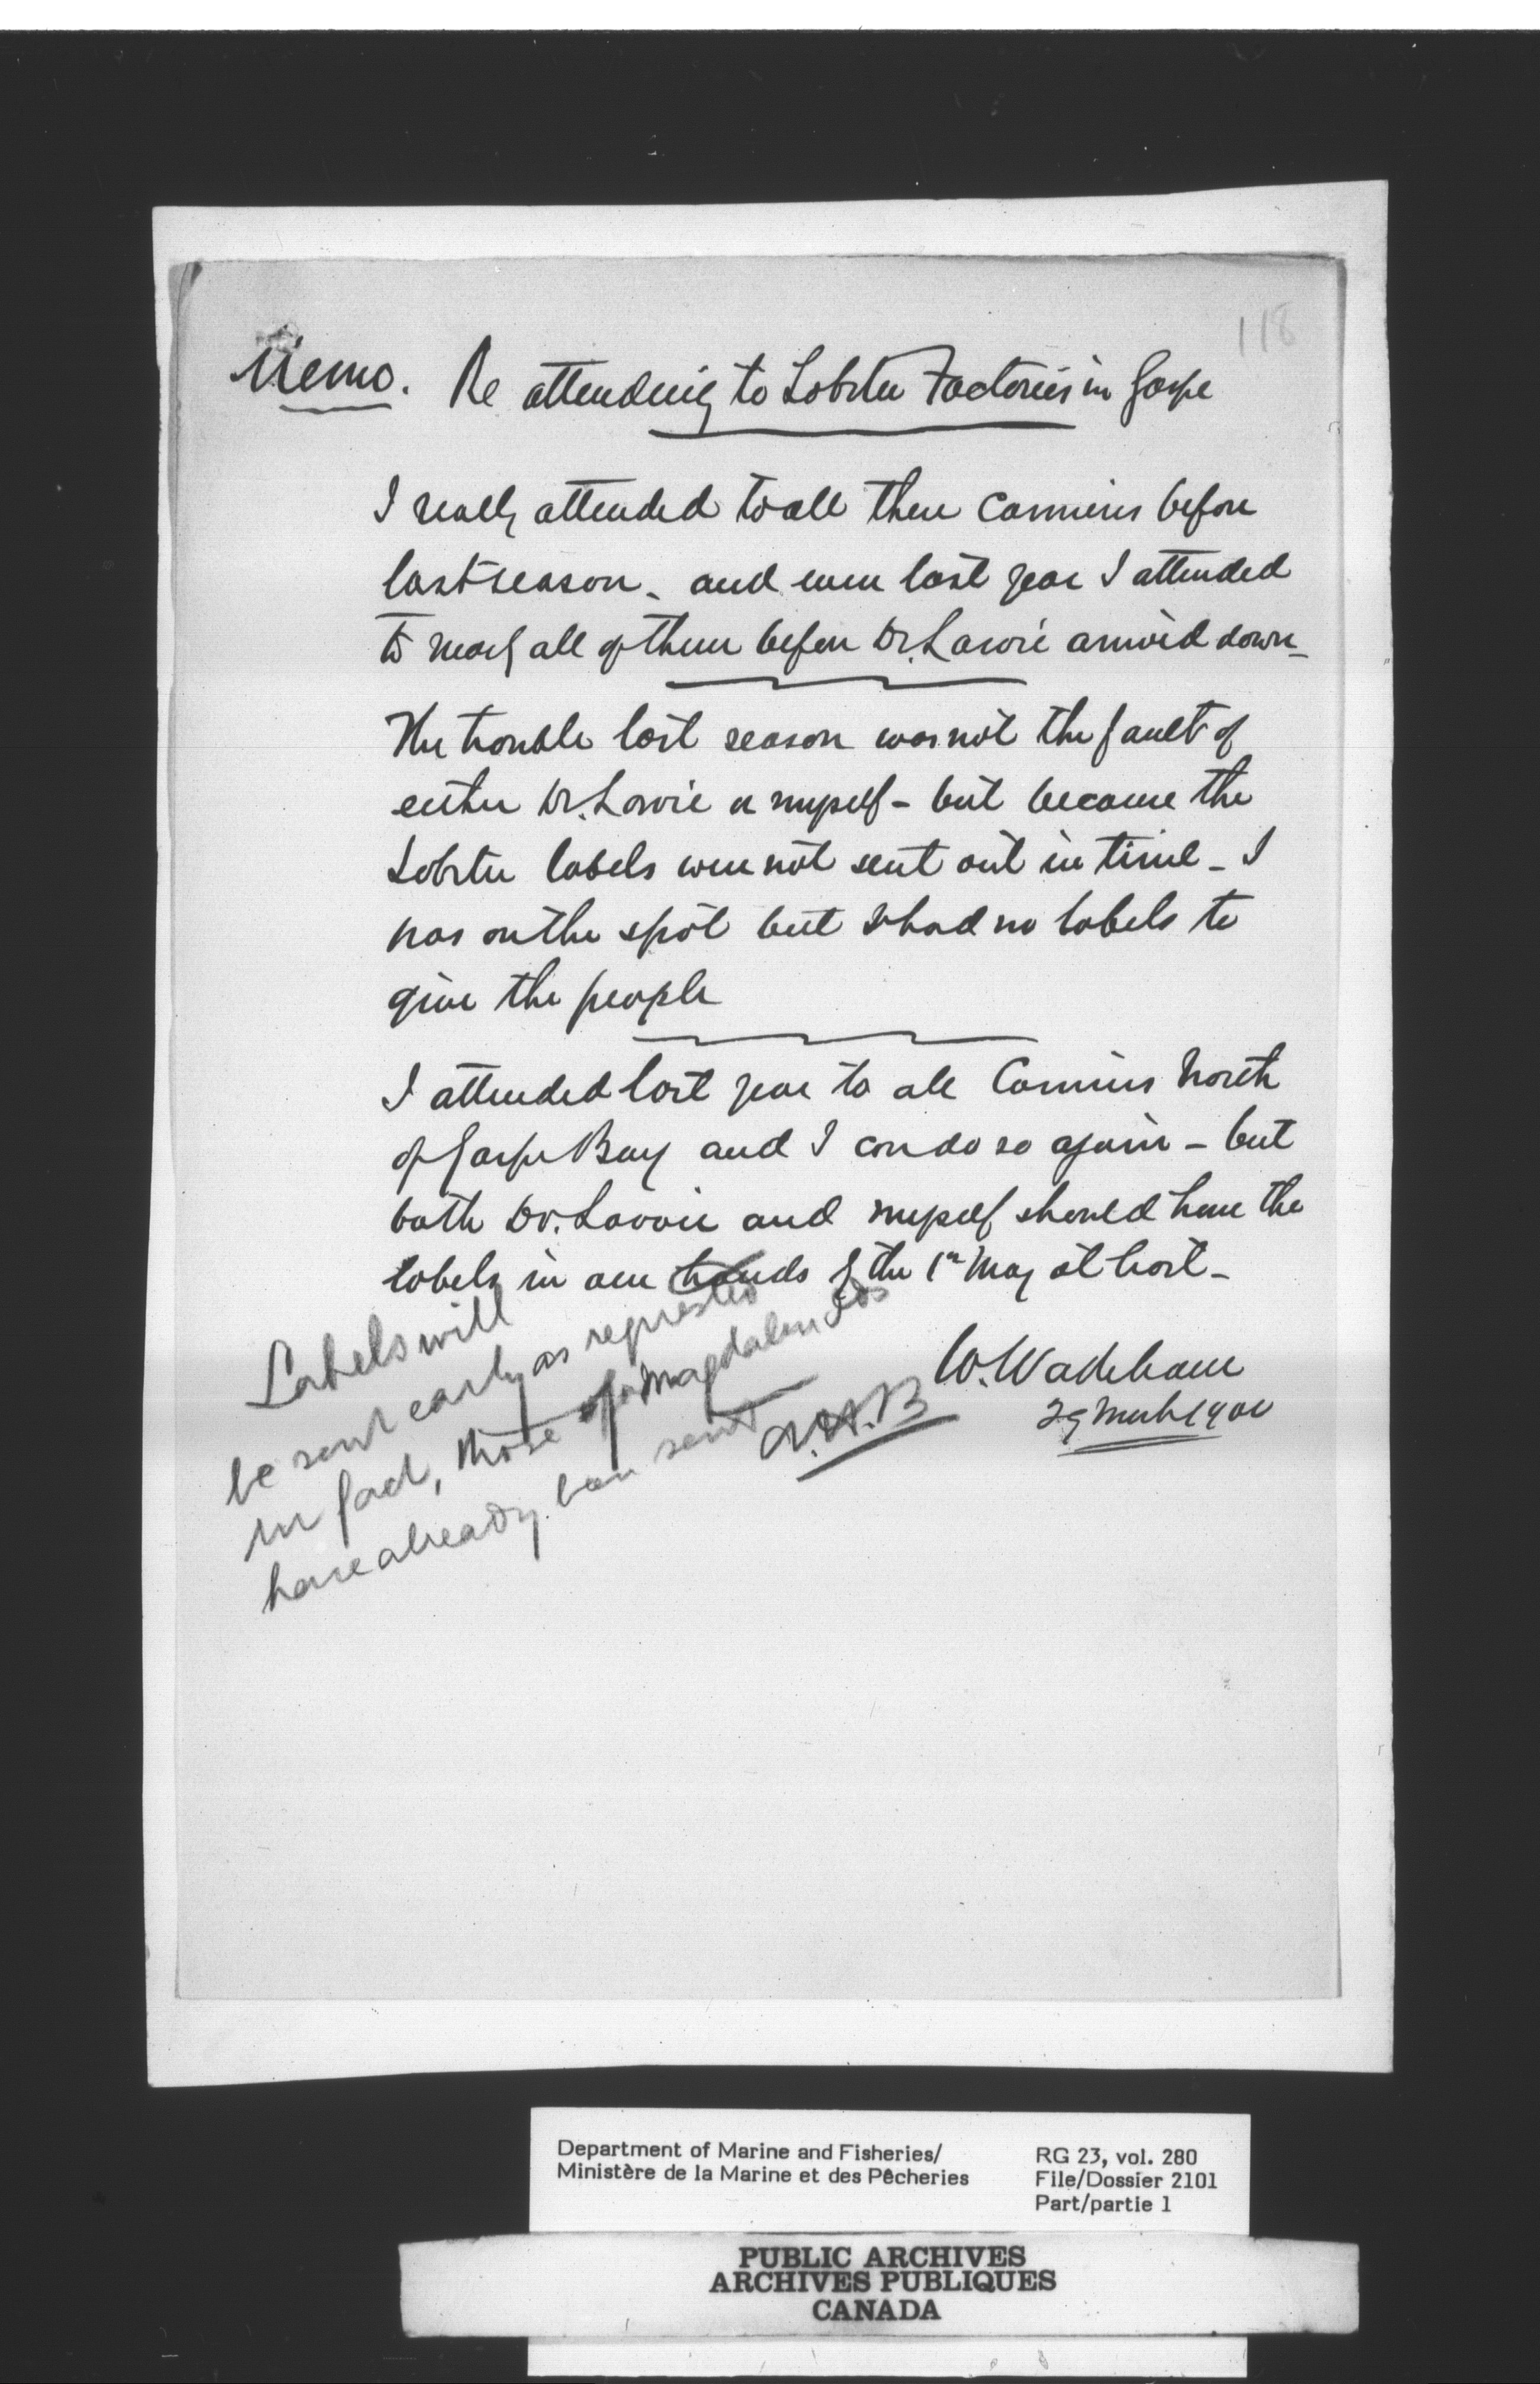 118
Memo. Re attending to Lobster Factories in Gaspe
I really attended to all these Canneries before
last season - and even last year I attended
to nearly all of them before Dr. Lavoie arrived down -
The trouble last season was not the fault of
either Dr. Lavoie or myself - but because the
Lobster labels were not sent out in time - I
was on the spot but I had no labels to
give the people
I attended last year to all Canneries North
of Gaspe Bay and I can do so again - but
both Dr. Lavoie and myself should have the
labels in our hands by the 1st May at least -
W. Wakeham
29 March 1901
Labels will
be sent early as requested
in fact, those for Magdalen Ids
have already been sent
Department of Marine and Fisheries/
Ministère de la Marine et des Pêcheries
RG 23, vol. 280
File/Dossier 2101
Part/partie 1
PUBLIC ARCHIVES
ARCHIVES PUBLIQUES
CANADA